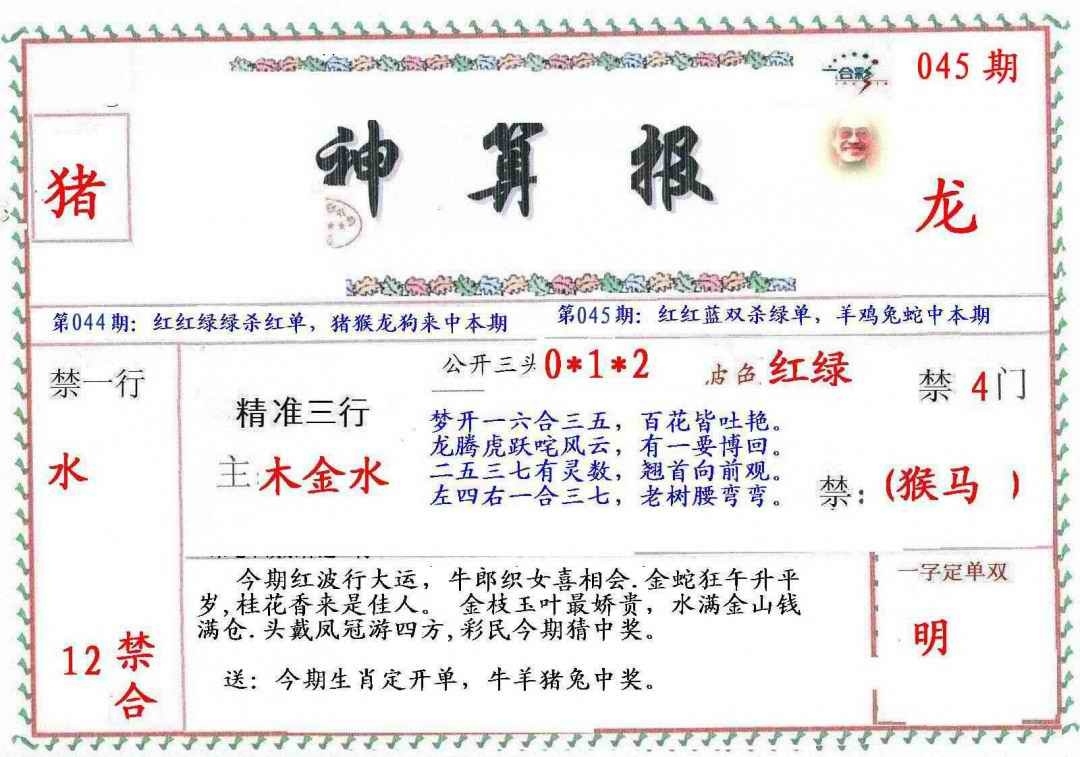 合彩
045 期
猪
神算报
龙
第044期：红红绿绿杀红单，猪猴龙狗来中本期
第045期：红红蓝双杀绿单，羊鸡兔蛇中本期
禁一行
水
12禁合
精准三行
主:木金水
公开三头0*1*2
波色 红绿
梦开一六合三五，百花皆吐艳。
龙腾虎跃咤风云，有一要博回。
二五三七有灵数，翘首向前观。
左四右一合三七，老树腰弯弯。
禁 4门
禁：(猴马 )
今期红波行大运，牛郎织女喜相会.金蛇狂午升平
岁,桂花香来是佳人。 金枝玉叶最娇贵，水满金山钱
满仓.头戴凤冠游四方,彩民今期猜中奖。
送：今期生肖定开单，牛羊猪兔中奖。
一字定单双
明